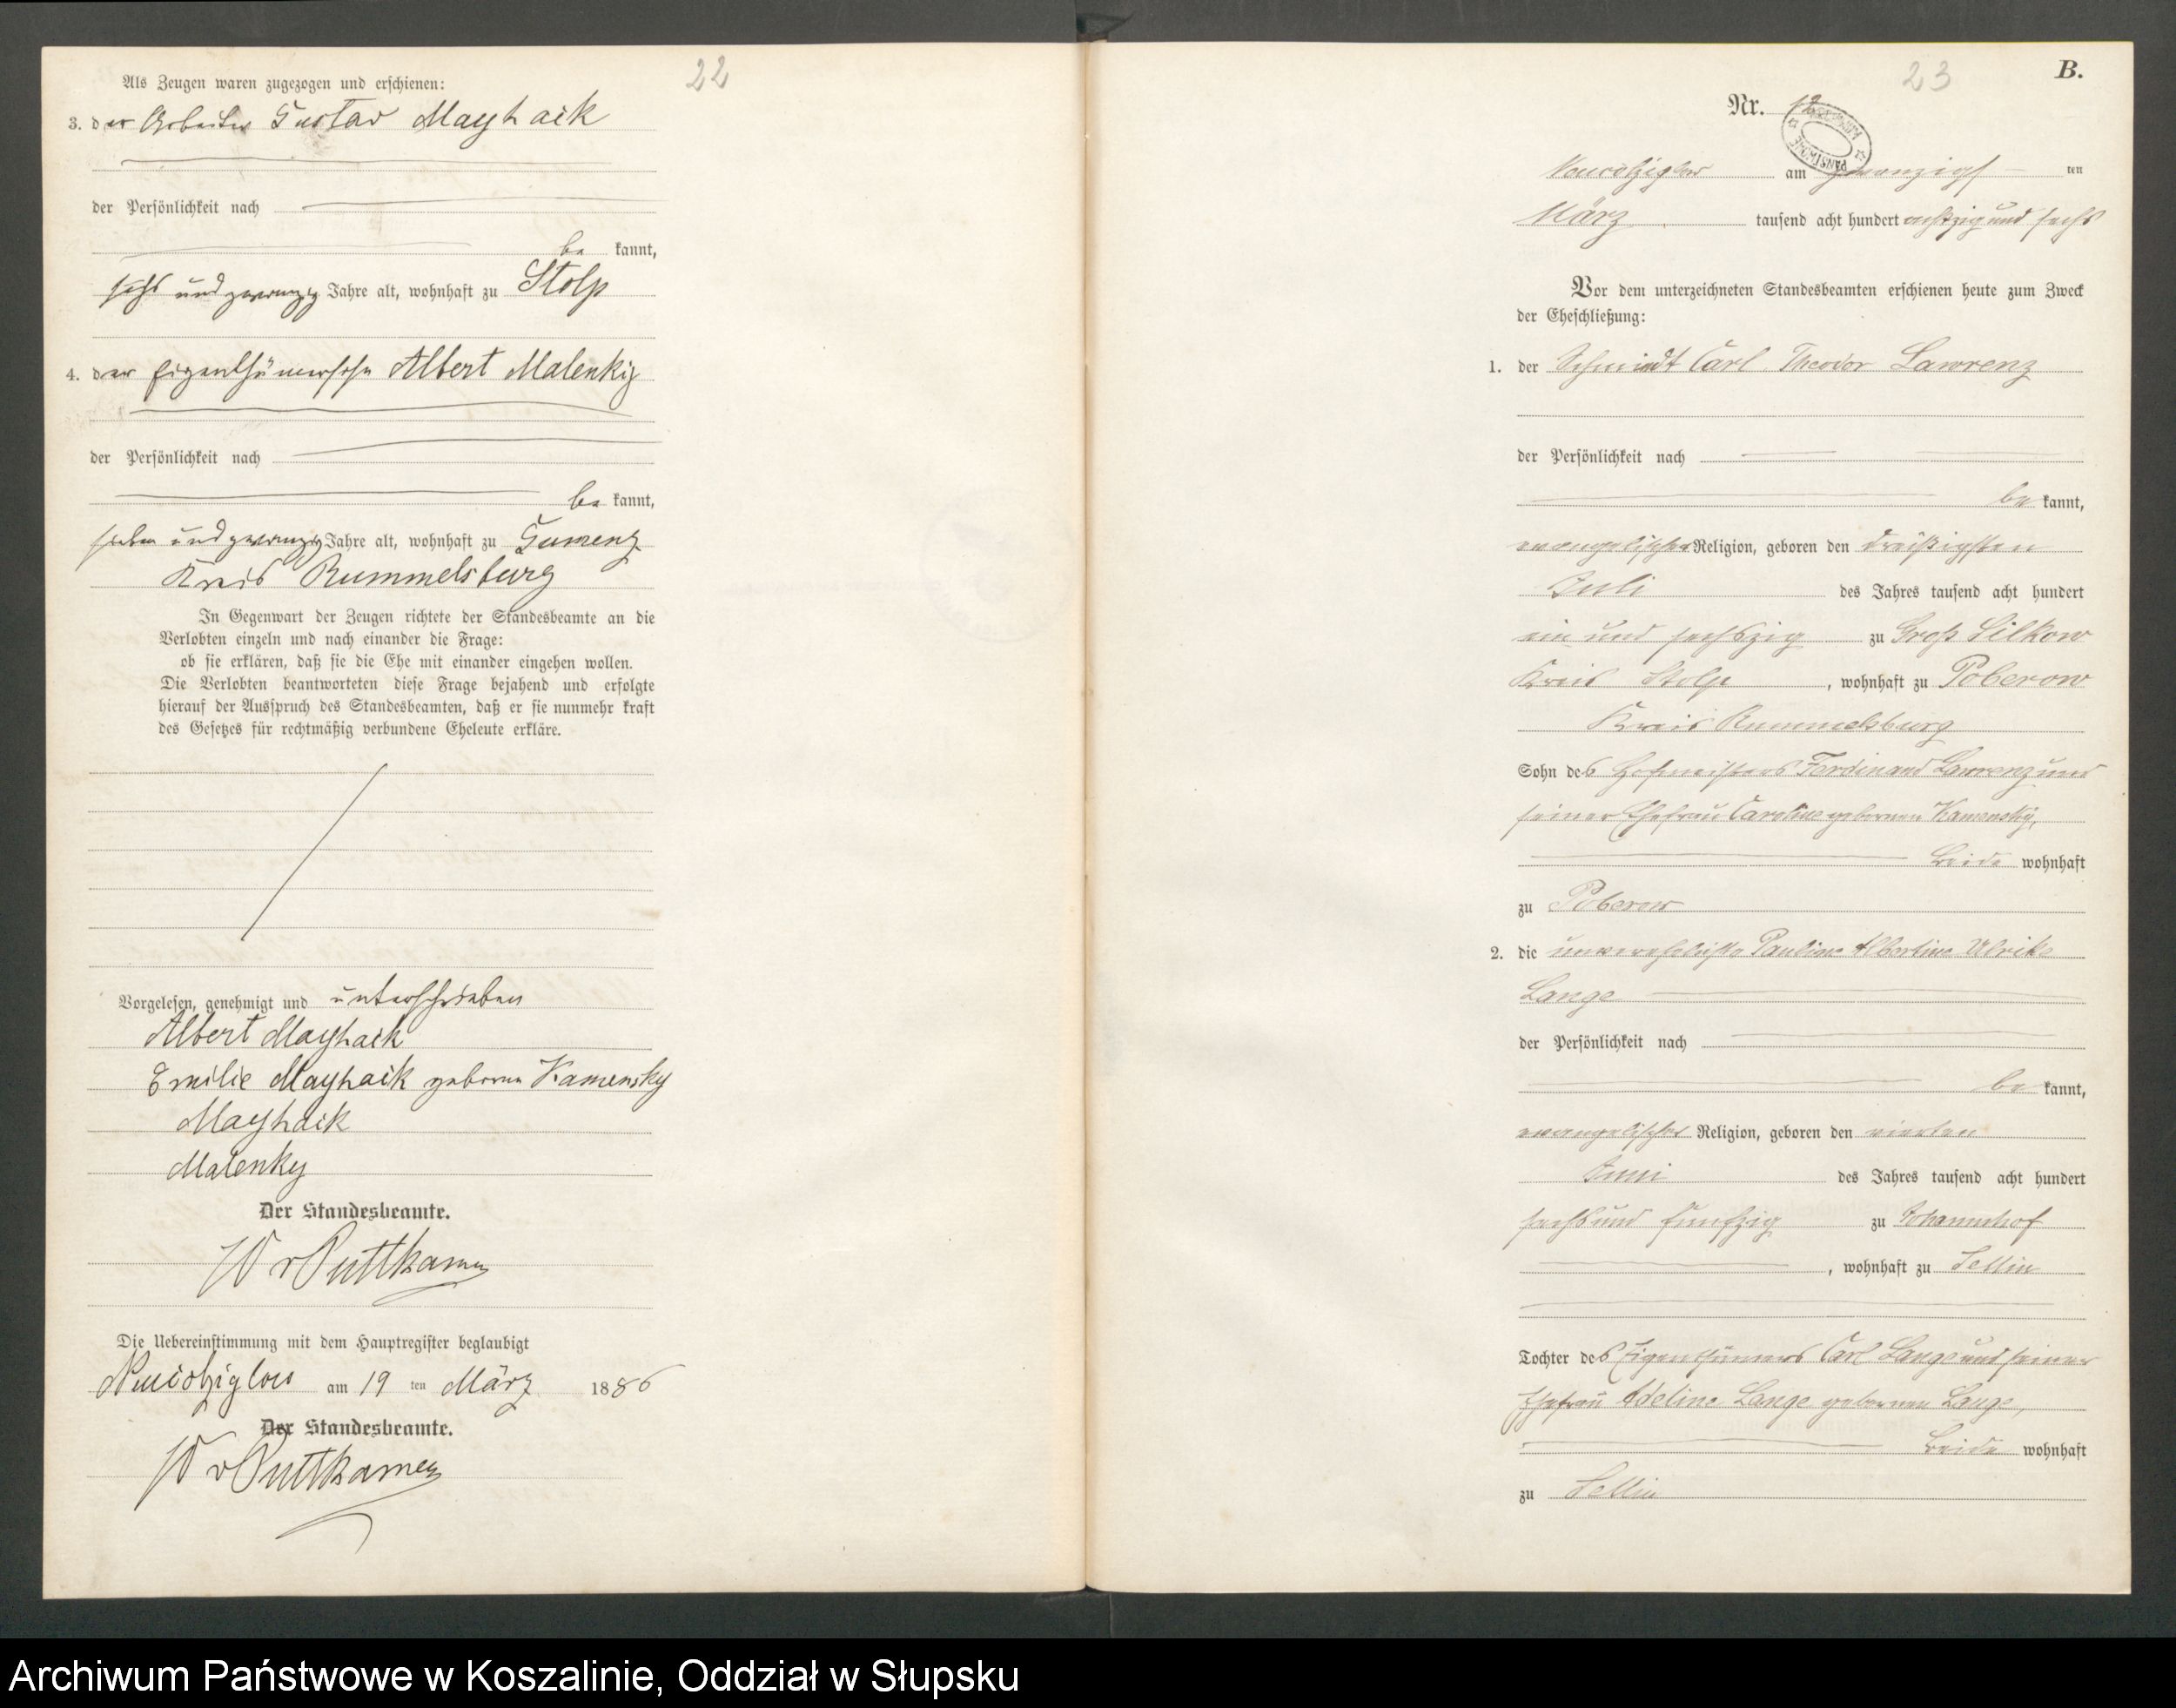 22
Als Zeugen waren zugezogen und erschienen:
3. der Arbeiter Gustav Mayhack
der Persönlichkeit nach
be kannt,
sechs und zwanzig Jahre alt, wohnhaft zu Stolp
4. der Eigenthümersohn Albert Malenky
der Persönlichkeit nach
be kannt,
sieben und zwanzig Jahre alt, wohnhaft zu Gumenz
Kreis Rummelsburg
In Gegenwart der Zeugen richtete der Standesbeamte an die
Verlobten einzeln und nach einander die Frage:
ob sie erklären, daß sie die Ehe mit einander eingehen wollen.
Die Verlobten beantworteten diese Frage bejahend und erfolgte
hierauf der Ausspruch des Standesbeamten, daß er sie nunmehr kraft
des Gesetzes für rechtmäßig verbundene Eheleute erkläre.
Vorgelesen, genehmigt und unterschrieben
Albert Mayhack
Emilie Mayhack geborne Kamensky
Mayhack
Malenky
Der Standesbeamte.
W v Puttkamer
Die Uebereinstimmung mit dem Hauptregister beglaubigt
am 19 ten März 1886
Der Standesbeamte.
W v Puttkamer
23
B.
Nr.
am zwanzigs ten
März tausend acht hundert achtzig und sechs
Vor dem unterzeichneten Standesbeamten erschienen heute zum Zweck
der Eheschließung:
1. der Schmiedt Carl Theodor Lawrenz
der Persönlichkeit nach
be kannt,
evangelischer Religion, geboren den dreißigsten
Juli des Jahres tausend acht hundert
ein und sechszig zu Groß Silkow
Kreis Stolp, wohnhaft zu Poberow
Kreis Rummelsburg
Sohn des Hofmeisters Ferdinand Lawrenz und
seiner Ehefrau Caroline gebornen Kamensky,
Beide wohnhaft
zu Poberow
2. die unverehelichte Pauline Albertine Ulrike
Lange
der Persönlichkeit nach
be kannt,
evangelischer Religion, geboren den vierten
Juni des Jahres tausend acht hundert
sechs und fünfzig zu Johannhof
, wohnhaft zu Sellin
Tochter des Eigenthümers Carl Lange und seiner
Ehefrau Adeline Lange gebornen Lange,
Beide wohnhaft
zu Sellin
Archiwum Państwowe w Koszalinie, Oddział w Słupsku